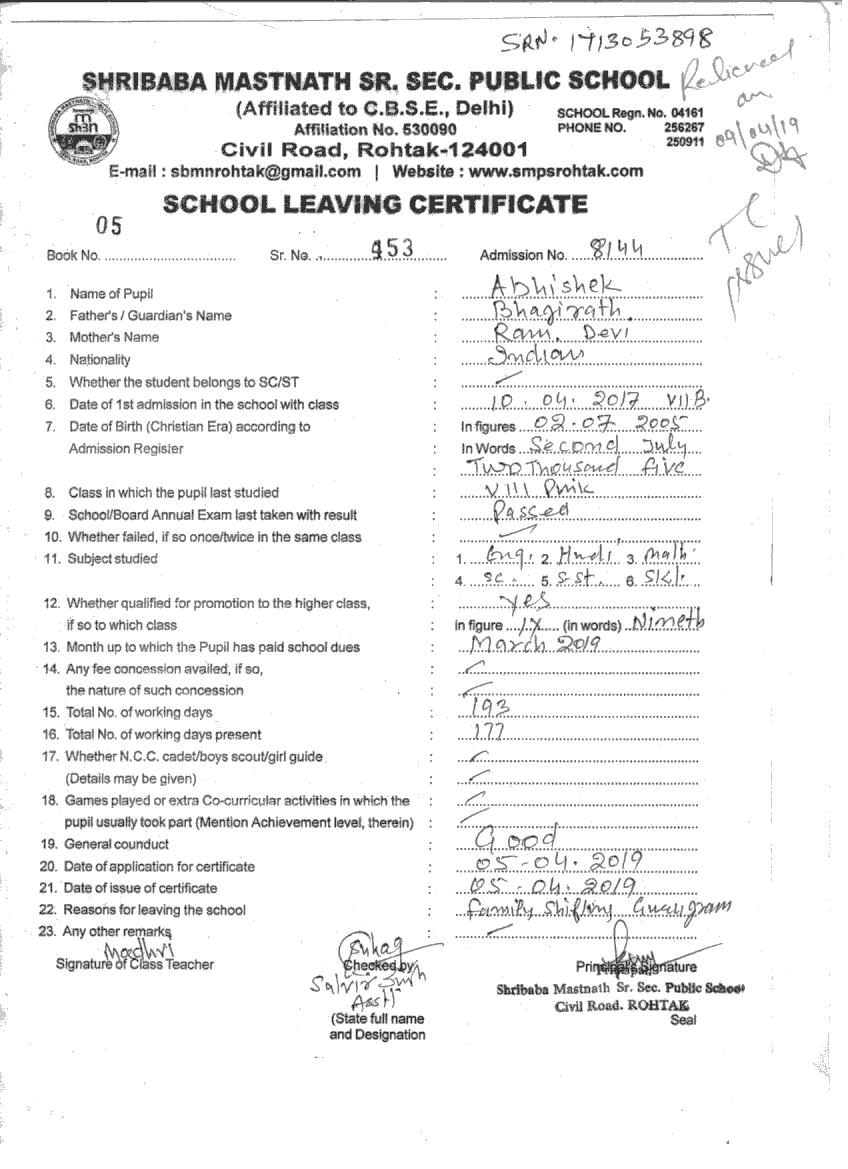 SRN. 1713053898
SHRIBABA MASTNATH SR. SEC. PUBLIC SCHOOL
(Affiliated to C.B.S.E., Delhi)
Affiliation No. 530090
SCHOOL Regn. No. 04161
PHONE NO. 256267
250911
Civil Road, Rohtak-124001
E-mail : sbmnrohtak@gmail.com | Website : www.smpsrohtak.com
on
09/04/19
SCHOOL LEAVING CERTIFICATE
TC
Book No. 05 Sr. No. 453 Admission No. 8144
1. Name of Pupil : Abhishek
2. Father's / Guardian's Name : Bhagirath.
3. Mother's Name : Ram. Devi
4. Nationality : Indian
5. Whether the student belongs to SC/ST :
6. Date of 1st admission in the school with class : 10. 04. 2017 VII B.
7. Date of Birth (Christian Era) according to : In figures 02.07 2005
Admission Register In Words Second July
: Two Thousand five
8. Class in which the pupil last studied : VIII Pink
9. School/Board Annual Exam last taken with result : Passed
10. Whether failed, if so once/twice in the same class :
11. Subject studied : 1. Eng. 2. Hindi 3. Math.
: 4. Sc. 5. S.St. 6. Skt.
12. Whether qualified for promotion to the higher class, : Yes
if so to which class : in figure IX (in words) Nineth
13. Month up to which the Pupil has paid school dues : March 2019
14. Any fee concession availed, if so, :
the nature of such concession :
15. Total No. of working days : 193
16. Total No. of working days present : 177
17. Whether N.C.C. cadet/boys scout/girl guide :
(Details may be given) :
18. Games played or extra Co-curricular activities in which the :
pupil usually took part (Mention Achievement level, therein) :
19. General counduct : Good
20. Date of application for certificate : 05-04. 2019
21. Date of issue of certificate : 05. 04. 2019
22. Reasons for leaving the school : Family Shifting Gurugram
23. Any other remarks :
Signature of Class Teacher
Checked by
Principal's Signature
Shribaba Mastnath Sr. Sec. Public School
Civil Road. ROHTAK
Seal
(State full name
and Designation